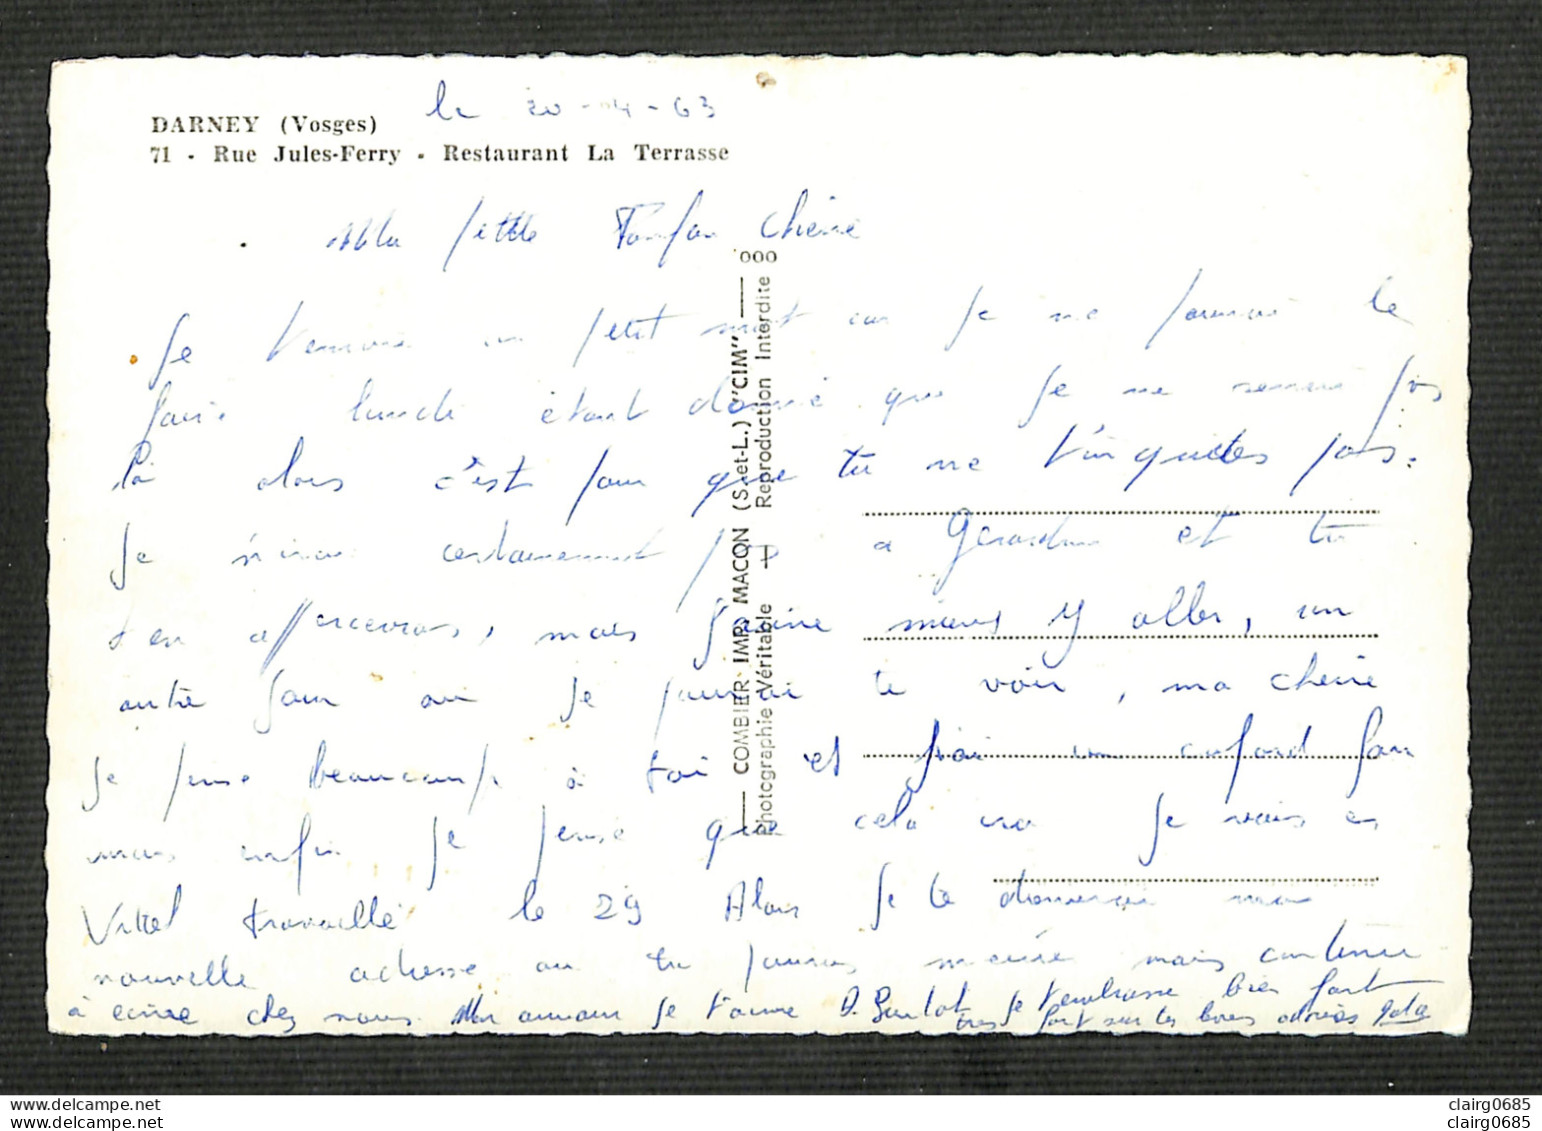 le 20-4-63
DARNEY (Vosges)
71 - Rue Jules-Ferry - Restaurant La Terrasse
Ma petite chérie
Je t'envoie un petit mot car je ne pourrai le
faire lundi étant donné que je ne serai pas
là alors c'est pour que tu ne t'inquietes pas.
Je n'irai certainement pas a Gerardmer et tu
t'en appercevras, mais j'aime mieux y aller, un
autre jour ou je pourrai te voir, ma cherie
je pense beaucoup à toi et j'ai un cafard fou
mais enfin je pense que cela ira je vais a
Vittel travaillé le 29 Alors je te donnerai ma
nouvelle adresse ou tu pourras mecrire mais continue
à ecrire chez nous. Mon amour je t'aime je t'embrasse bien fort
tres fort sur tes levres adorées
COMBIER IMP. MACON (S.-et-L.) "CIM"
Photographie Véritable - Reproduction Interdite
clairg0685
clairg0685
clairg0685
clairg0685